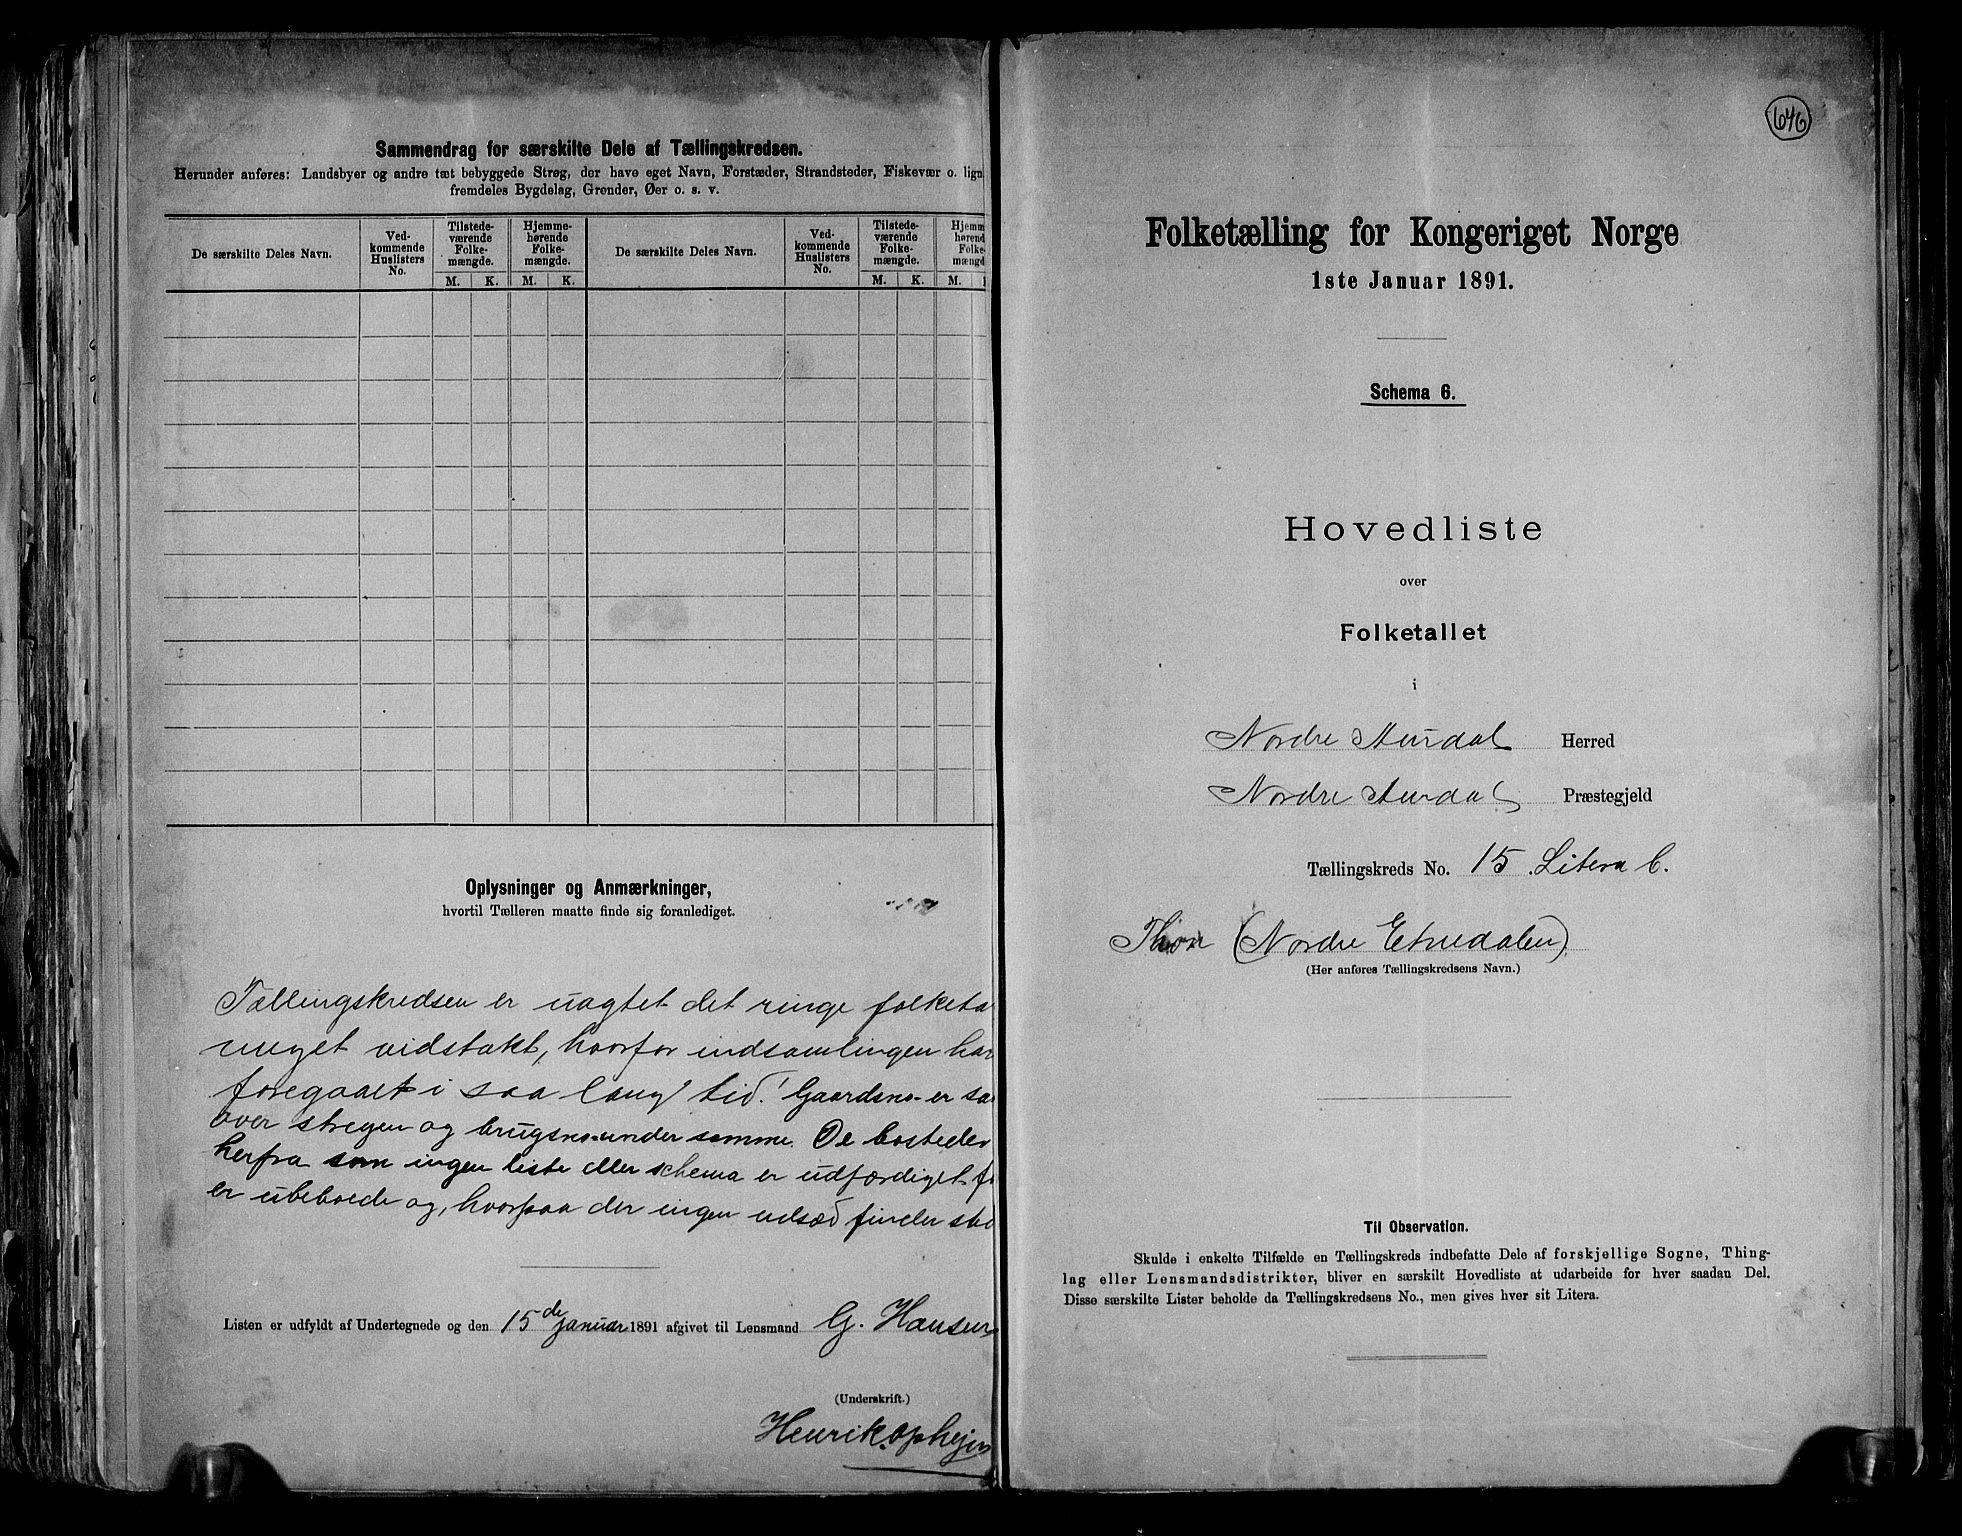 Sammendrag for særskilte Dele af Tællingskredsen.
Herunder anføres: Landsbyer og andre tæt bebyggede Strøg, der have eget Navn, Forstæder, Strandsteder, Fiskevær o. lign
fremdeles Bygdelag, Grender, Øer o. s. v.
De særskilte Deles Navn.
Ved-
kommende
Huslisters
No.
Tilstede-
værende
Folke-
mængde.
M. K.
Hjemme-
hørende
Folke-
mængde.
M. K.
De særskilte Deles Navn.
Ved-
kommende
Huslisters
No.
Tilstede-
værende
Folke-
mængde.
M. K.
Hjemm
hørend
Folke-
mængd
M.
Oplysninger og Anmærkninger,
hvortil Tælleren maatte finde sig foranlediget.
Tællingskredsen er uagtet det ringe folketa
meget vidstakt, hvorfor indsamlingen har
foregaaet i saa lang tid! Gaardsno. er sa
over stregen og brugsno. under samme. De bosteder
herfra som ingen liste eller schema er udfærdiget f
er ubeboede og, hvorpaa der ingen udsæd finder sted
Listen er udfyldt af Undertegnede og den 15de januar 1891 afgivet til Lensmand G. Hansen
(Underskrift.)
Henrik Ophejm
646
Folketælling for Kongeriget Norge
1ste Januar 1891.
Schema 6.
Hovedliste
over
Folketallet
i
Nordre Aurdal Herred
Nordre Aurdal Præstegjeld
Tællingskreds No. 15 Litera C.
Thon (Nordre Etnedalen)
(Her anføres Tællingskredsens Navn.)
Til Observation.
Skulde i enkelte Tilfælde en Tællingskreds indbefatte Dele af forskjellige Sogne, Thing-
lag eller Lensmandsdistrikter, bliver en særskilt Hovedliste at udarbeide for hver saadan Del.
Disse særskilte Lister beholde da Tællingskredsens No., men gives hver sit Litera.